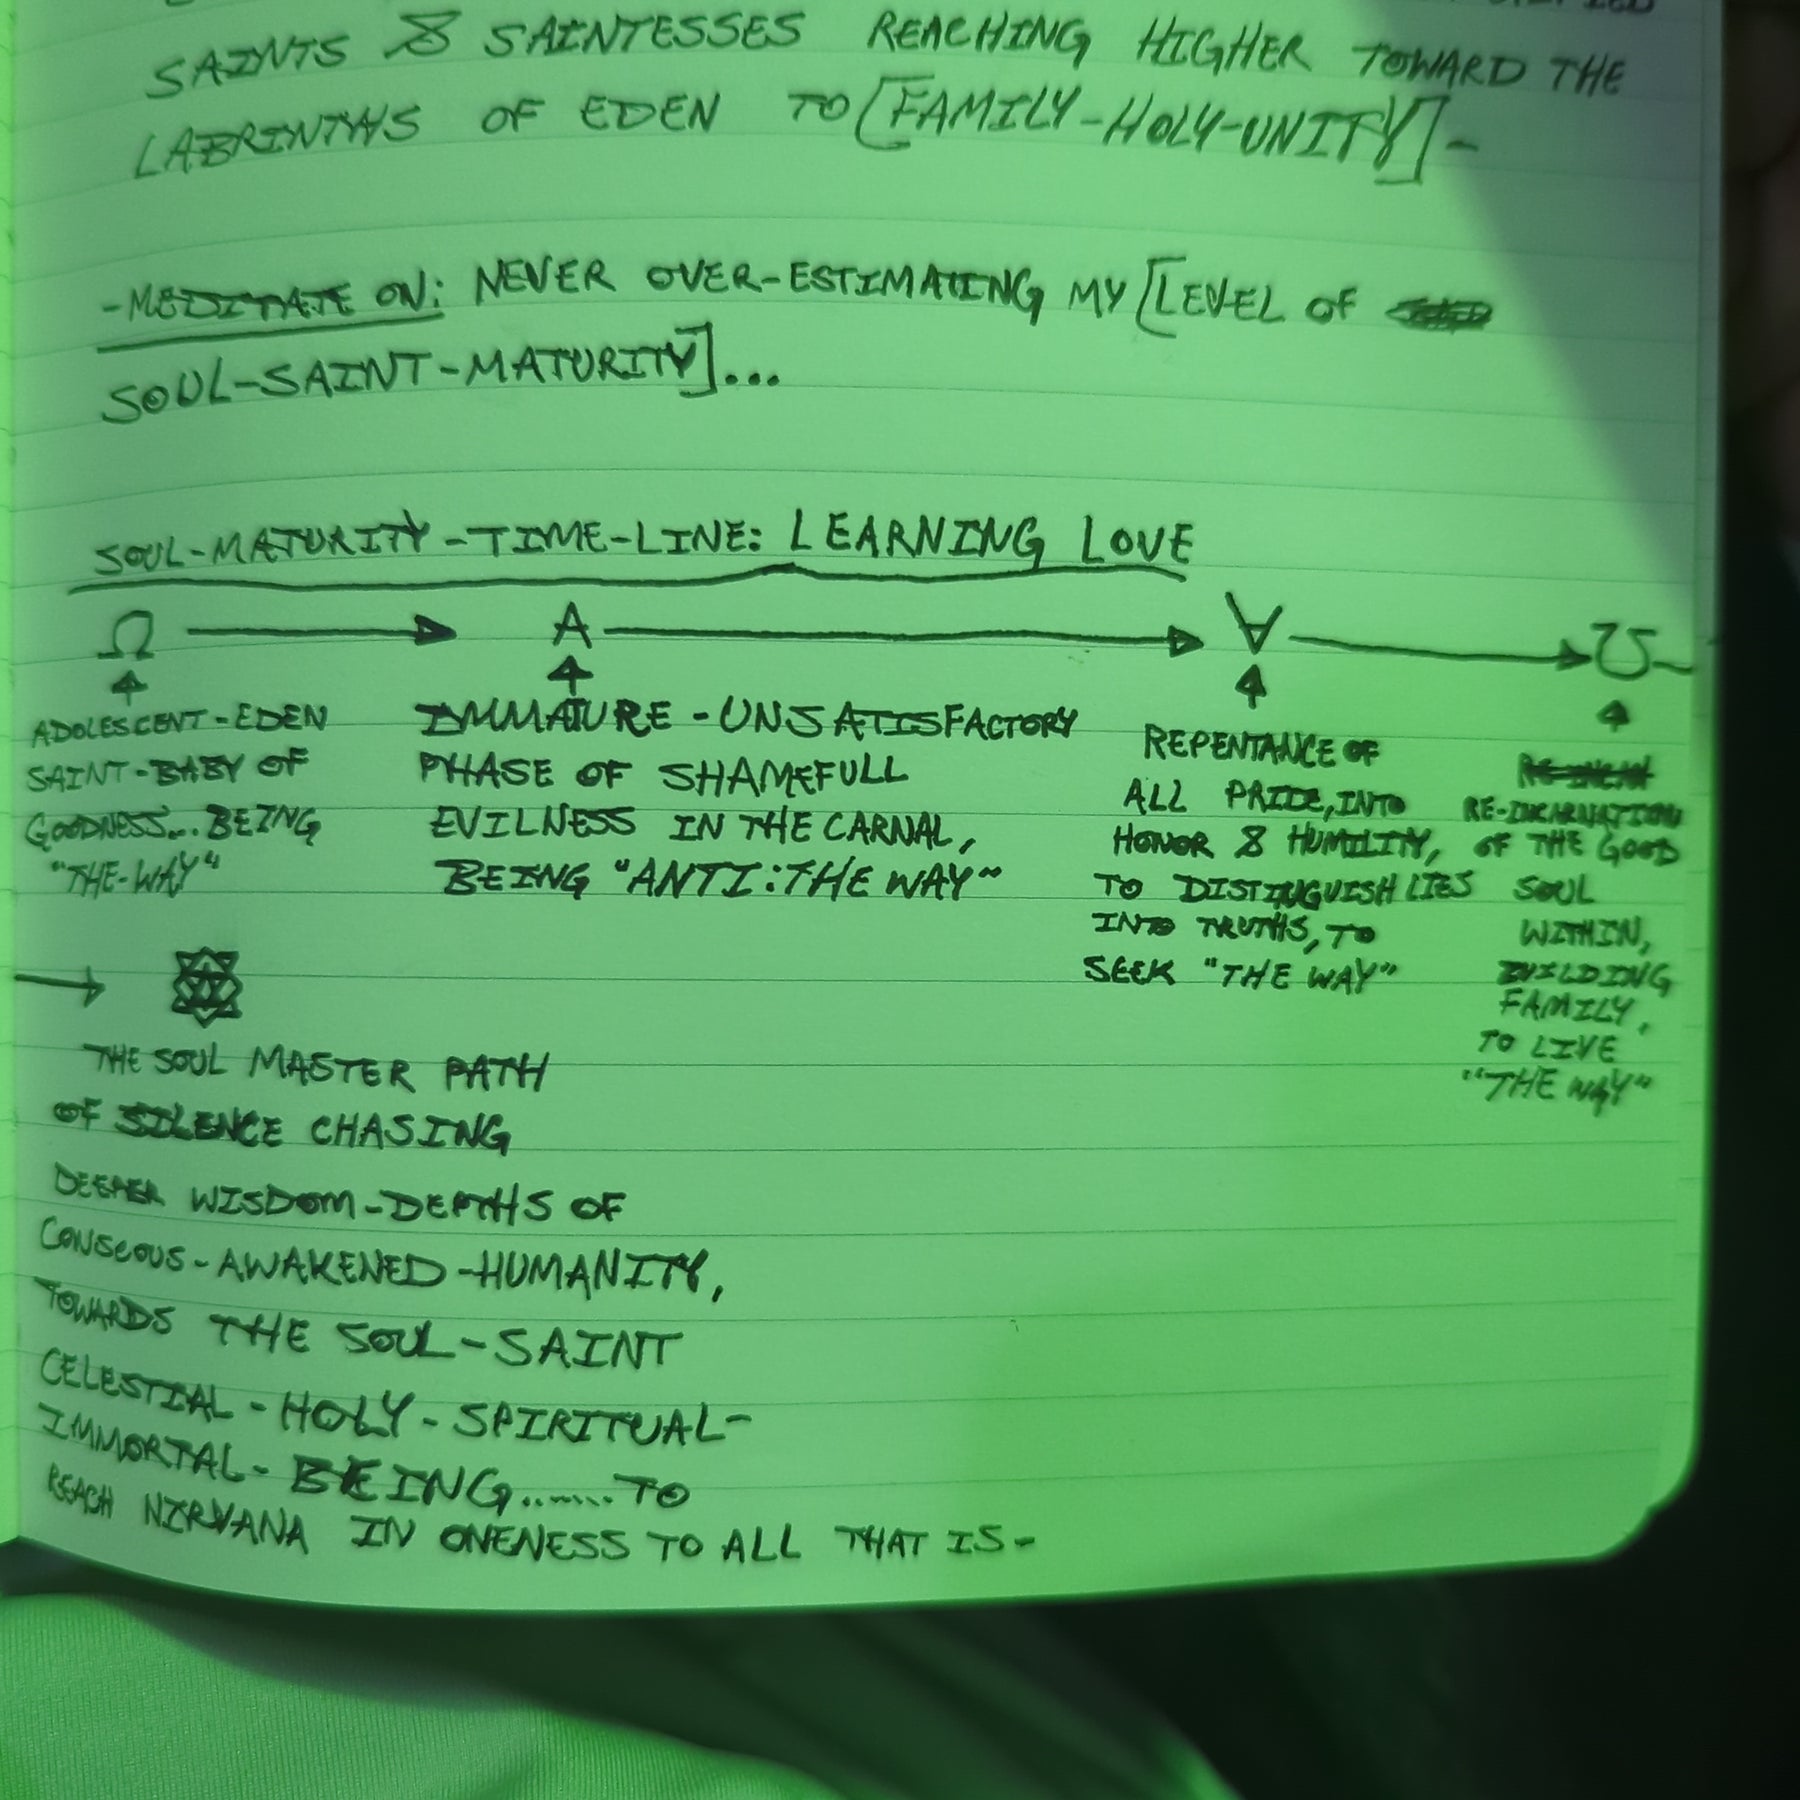 SAINTS & SAINTESSES REACHING HIGHER TOWARD THE
LABRINTHS OF EDEN TO [FAMILY-HOLY-UNITY]-
-MEDITATE ON: NEVER OVER-ESTIMATING MY [LEVEL OF
SOUL-SAINT-MATURITY]...
SOUL-MATURITY-TIME-LINE: LEARNING LOVE
Ω → A → ∀ → ℧
ADOLESCENT-EDEN
SAINT-BABY OF
GOODNESS... BEING
"THE-WAY"
IMMATURE-UNSATISFACTORY
PHASE OF SHAMEFULL
EVILNESS IN THE CARNAL,
BEING "ANTI:THE WAY"
REPENTANCE OF
ALL PRIDE, INTO
HONOR & HUMILITY,
TO DISTINGUISH LIES
INTO TRUTHS, TO
SEEK "THE WAY"
RE-INCARNATION
OF THE GOOD
SOUL
WITHIN,
BUILDING
FAMILY,
TO LIVE
"THE WAY"
→
THE SOUL MASTER PATH
OF SILENCE CHASING
DEEPER WISDOM-DEPTHS OF
CONSCOUS-AWAKENED-HUMANITY,
TOWARDS THE SOUL-SAINT
CELESTIAL-HOLY-SPIRITUAL-
IMMORTAL-BEING....... TO
REACH NIRVANA IN ONENESS TO ALL THAT IS-